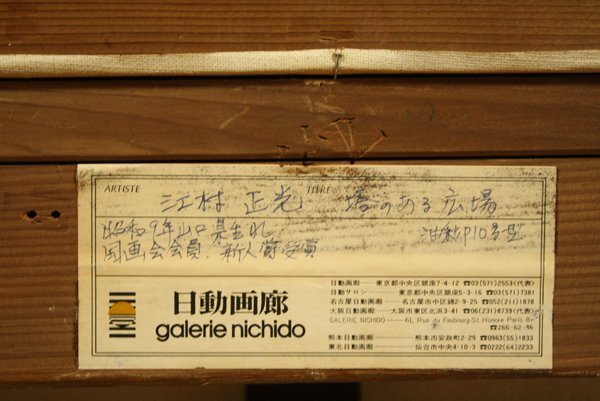 ARTISTE 江村 正光 TITRE 塔のある広場
昭和9年山口県生れ 油彩P10号型
国画会会員. 新人賞受賞
日動画廊
galerie nichido
日動画廊——東京都中央区銀座7-4-12 ☎03(571)2553(代表)
日動サロン——東京都中央区銀座5-3-16 ☎03(571)7381
名古屋日動画廊——名古屋市中区錦2-9-25 ☎052(211)1878
大阪日動画廊——大阪市東区北浜3-41 ☎06(231)8739(代表)
GALERIE NICHIDO——61, Rue du Faubourg-St. Honore Paris 8e
☎266-62-86
熊本日動画廊——熊本市安政町2-29 ☎0963(55)1833
東北日動画廊——仙台市中央4-10-3 ☎0222(64)2233